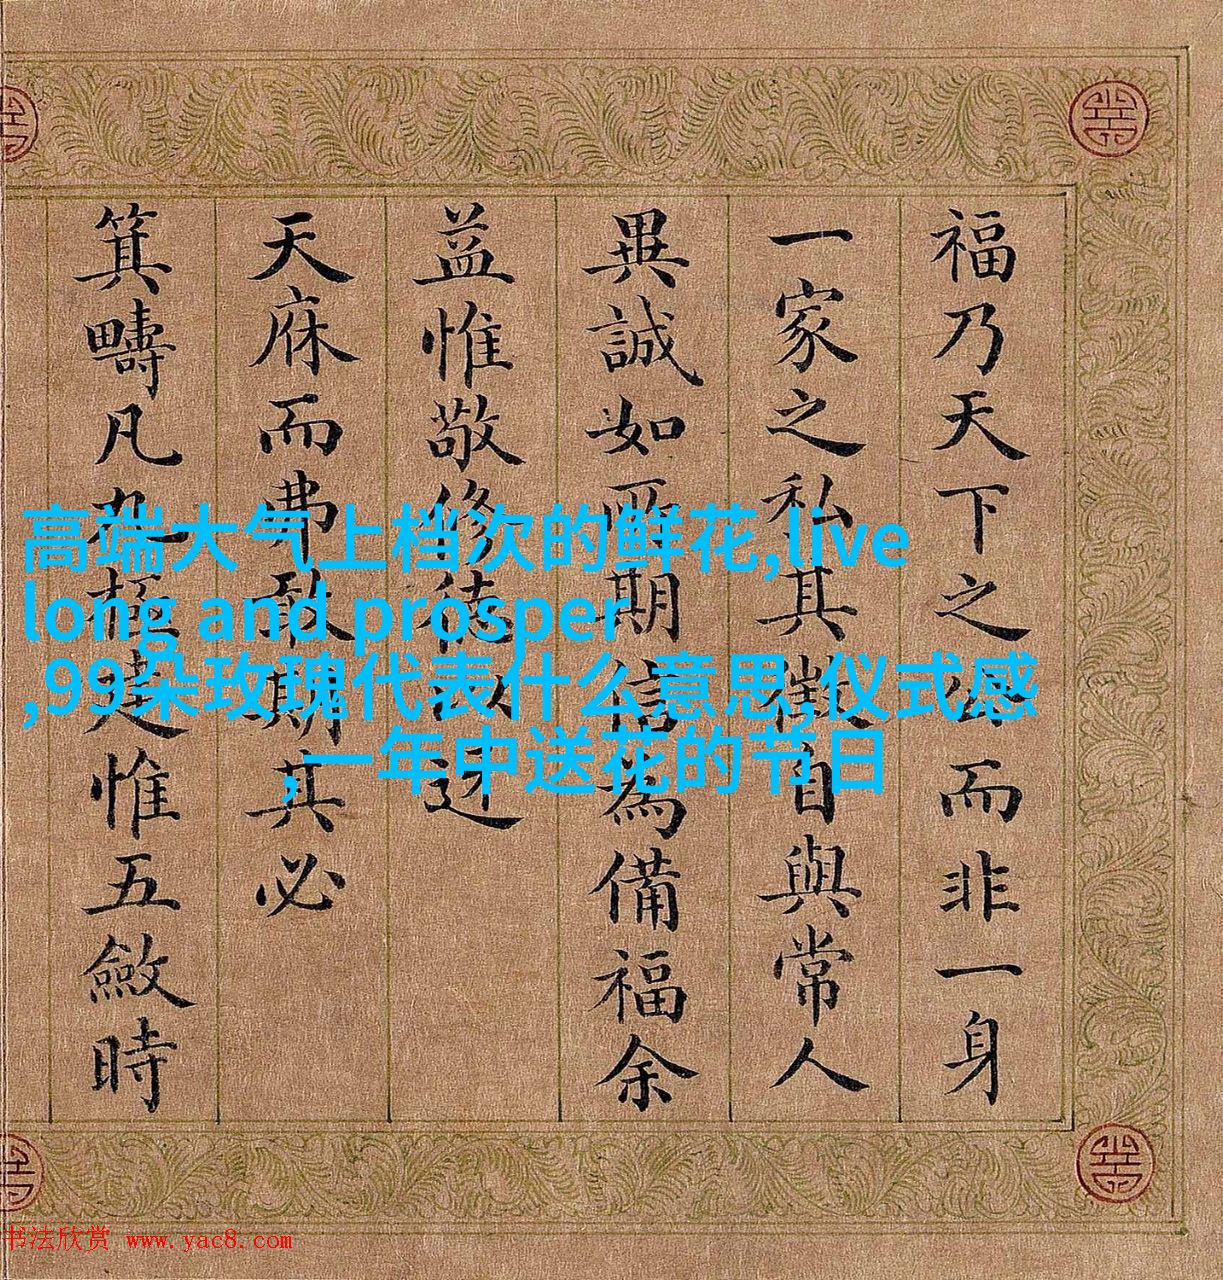 福乃天下之公而非一身
一家之私其徵自與常人
異誠如所期信為備福余
益惟敬修德以迓
天庥而弗敢期其必
箕疇凡九極建惟五斂時
高端大气上档次的鲜花,live
long and prosper
,99朵玫瑰代表什么意思,仪式感
,一年中送花的节日
书法欣赏 www.yac8.com